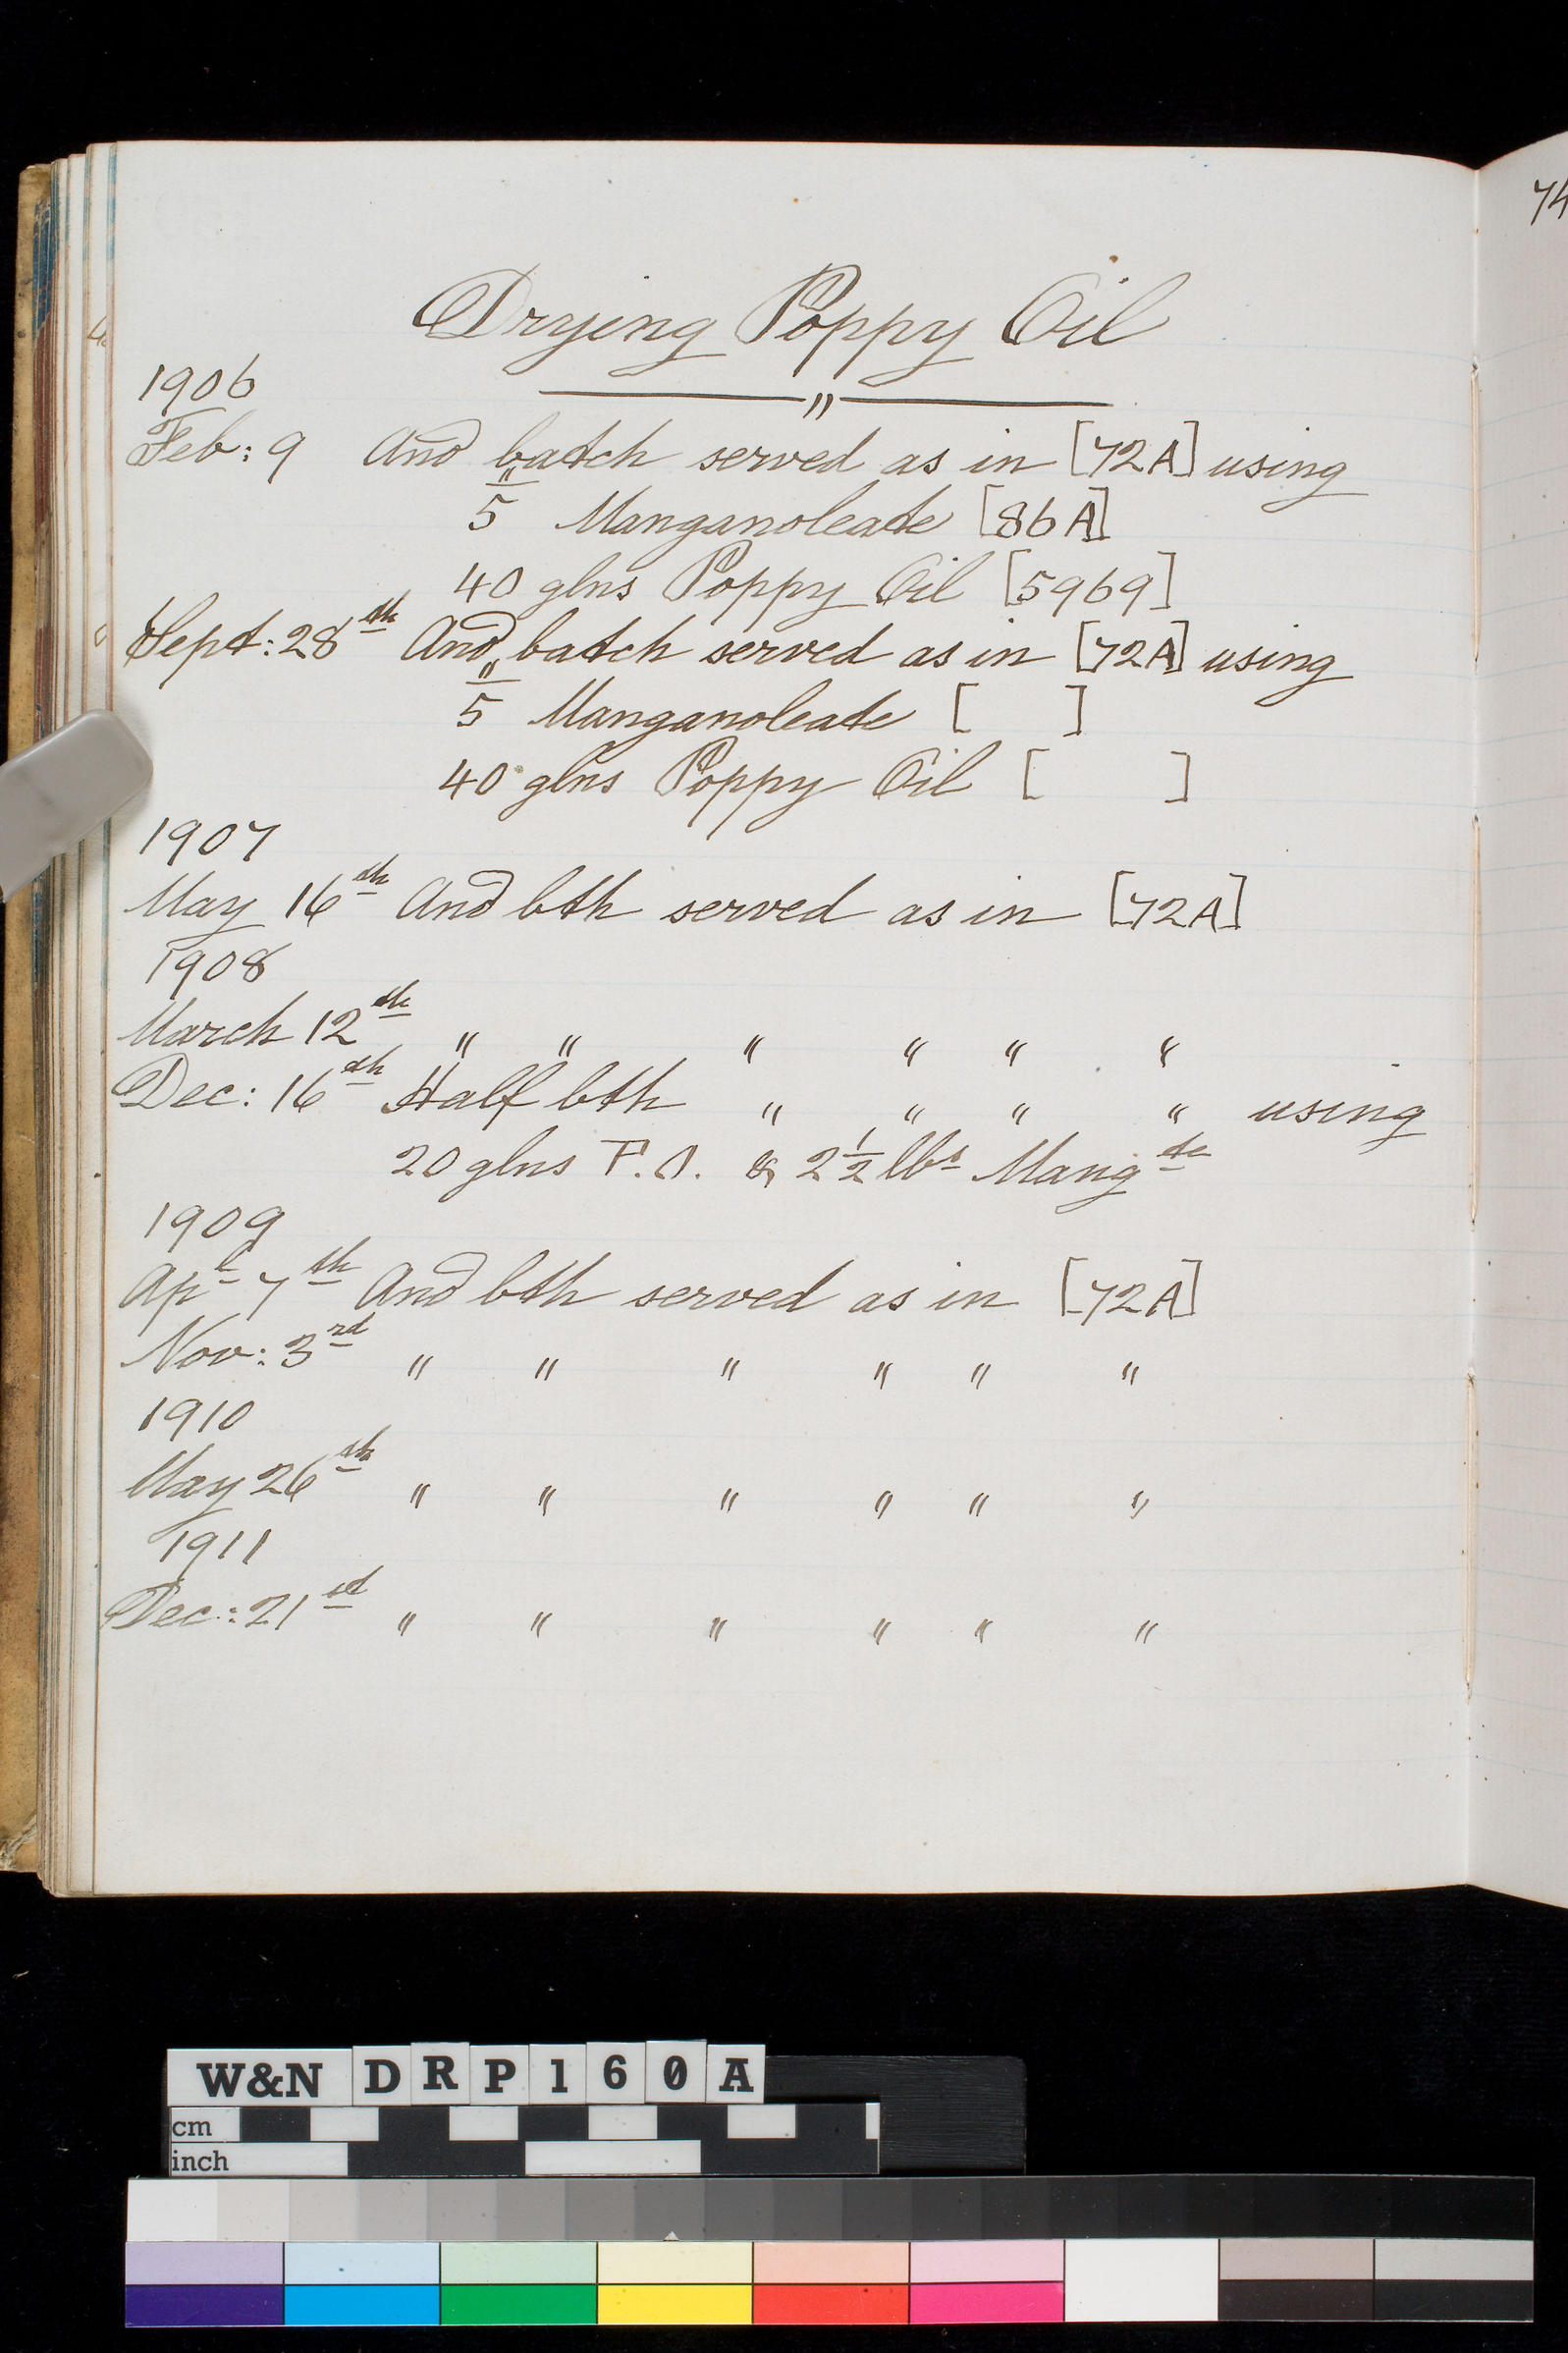 74
Drying Poppy Oil
1906
Feb: 9 And batch served as in [72A] using
5 Manganoleate [86A]
40 glns Poppy Oil [5969]
Sept: 28th And batch served as in [72A] using
5 Manganoleate [ ]
40 glns Poppy Oil [ ]
1907
May 16th And bth served as in [72A]
1908
March 12th " " " " " "
Dec: 16th Half bth " " " " using
20 glns P.O. & 2½ lbs Mangte
1909
Apl 7th And bth served as in [72A]
Nov: 3rd " " " " " "
1910
May 26th " " " " " "
1911
Dec: 21st " " " " " "
W&N DRP160A
cm
inch